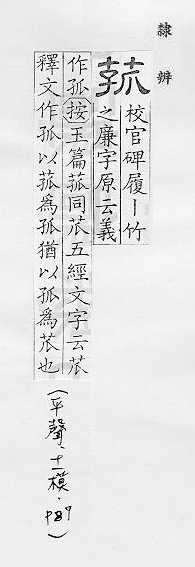 隸辨
菰
校官碑履丨竹
之廉字原云義
作孤按玉篇菰同苽五經文字云苽
釋文作孤以菰為孤猶以孤為苽也
(平聲·十一模·P89)